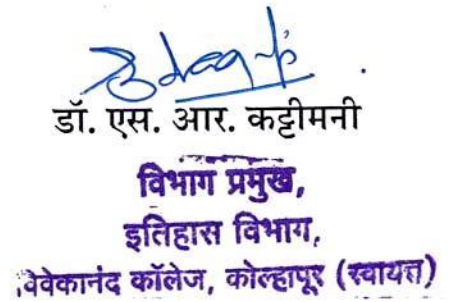 डॉ. एस. आर. कट्टीमनी
विभाग प्रमुख,
इतिहास विभाग,
विवेकानंद कॉलेज, कोल्हापूर (स्वायत्त)